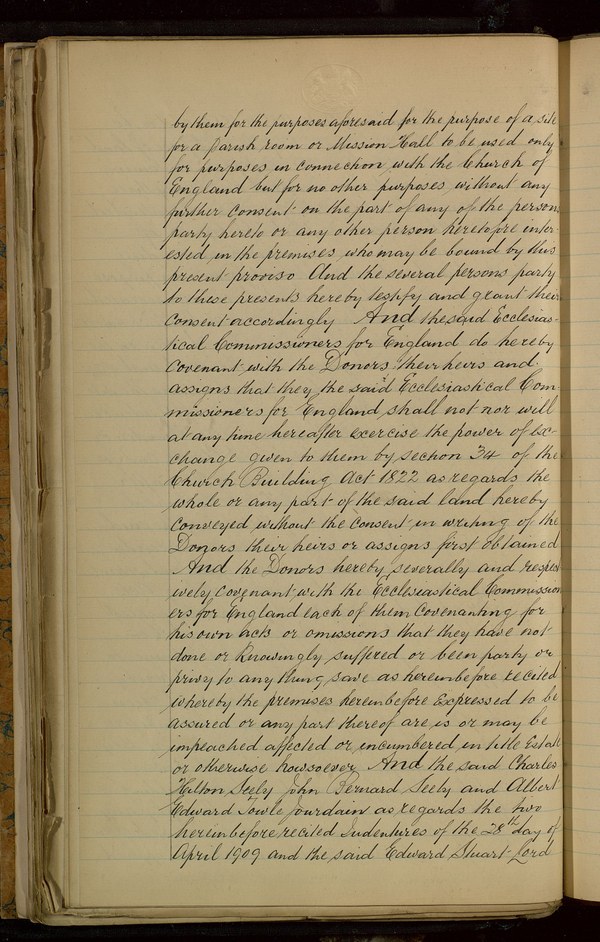 by them for the purposes aforesaid for the purpose of a site
for a Parish room or Mission Hall to be used only
for purposes in connection with the Church of
England but for no other purposes without any
further consent on the part of any of the persons
party hereto or any other person heretofore inter-
ested in the premises who may be bound by this
present proviso And the several persons party
to these presents hereby testify and grant their
consent accordingly And the said Ecclesias-
tical Commissioners for England do hereby
Covenant with the Donors their heirs and
assigns that they the said Ecclesiastical Com-
missioners for England shall not nor will
at any time hereafter exercise the power of ex-
change given to them by section 34 of the
Church Building Act 1822 as regards the
whole or any part of the said land hereby
conveyed without the consent in writing of the
Donors their heirs or assigns first obtained
And the Donors hereby severally and respect
ively Covenant with the Ecclesiastical Commission
ers for England each of them Covenanting for
his own acts or omissions that they have not
done or knowingly suffered or been party or
privy to any thing save as hereinbefore recited
whereby the premises hereinbefore expressed to be
assured or any part thereof are is or may be
impeached affected or incumbered in title Estate
or otherwise howsoever And the said Charles
Hilton Seely John Bernard Seely and Albert
Edward Towle Jourdain as regards the two
hereinbefore recited Indentures of the 28th day of
April 1909 and the said Edward Stuart Lord